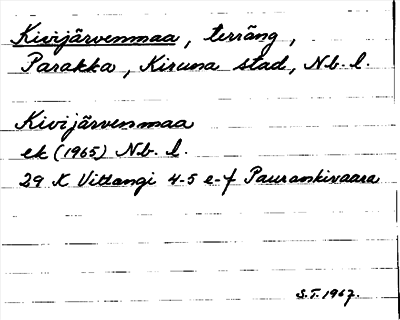 Kivijärvenmaa, terräng,
Parakka, Kiruna stad, Nb. l.
Kivijärvenmaa
ek (1965) Nb. l.
29 K Vittangi 4-5 e-f Paurankivaara
S.T. 1967.